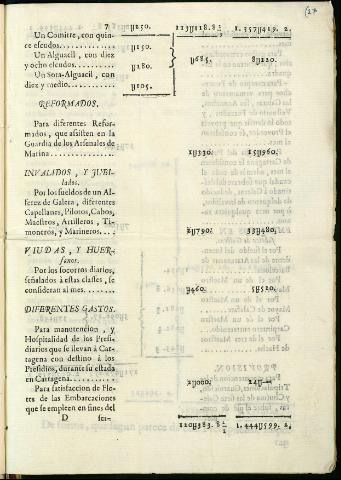 7
(27
ꓴ150. 113ꓴ118.8 1.357ꓴ419. 2.
Un Comitre, con quin-
ce escudos............ ꓴ150.
Un Alguacil, con diez
y ocho escudos........ ꓴ180. ꓴ685. 8ꓴ220.
Un Sota-Alguacil, con
diez y medio.......... ꓴ105.
REFORMADOS.
Para diferentes Refor-
mados, que assisten en la
Guardia de los Arsenales de
Marina............... 1ꓴ330. 15ꓴ960.
INVALIDOS, Y JUBI-
lados.
Por los sueldos de un Al-
ferez de Galera, diferentes
Capellanes, Pilotos, Cabos,
Maestros, Artilleros, Ti-
moneros, y Marineros... 2ꓴ790. 33ꓴ480.
VIUDAS, Y HUER-
fanos.
Por los socorros diarios,
señalados à estas clases, se
consideran al mes...... ꓴ460. 5ꓴ520.
DIFERENTES GASTOS.
Para manutencion, y
Hospitalidad de los Presi-
diarios que se llevan à Car-
tagena con destino à los
Presidios, durante su estada
en Cartagena.......... 2ꓴ000. 24ꓴ
Para satisfaccion de Fle-
tes de las Embarcaciones
que se empleen en fines del
D ser-
120ꓴ383. 8 1.444ꓴ599. 2.